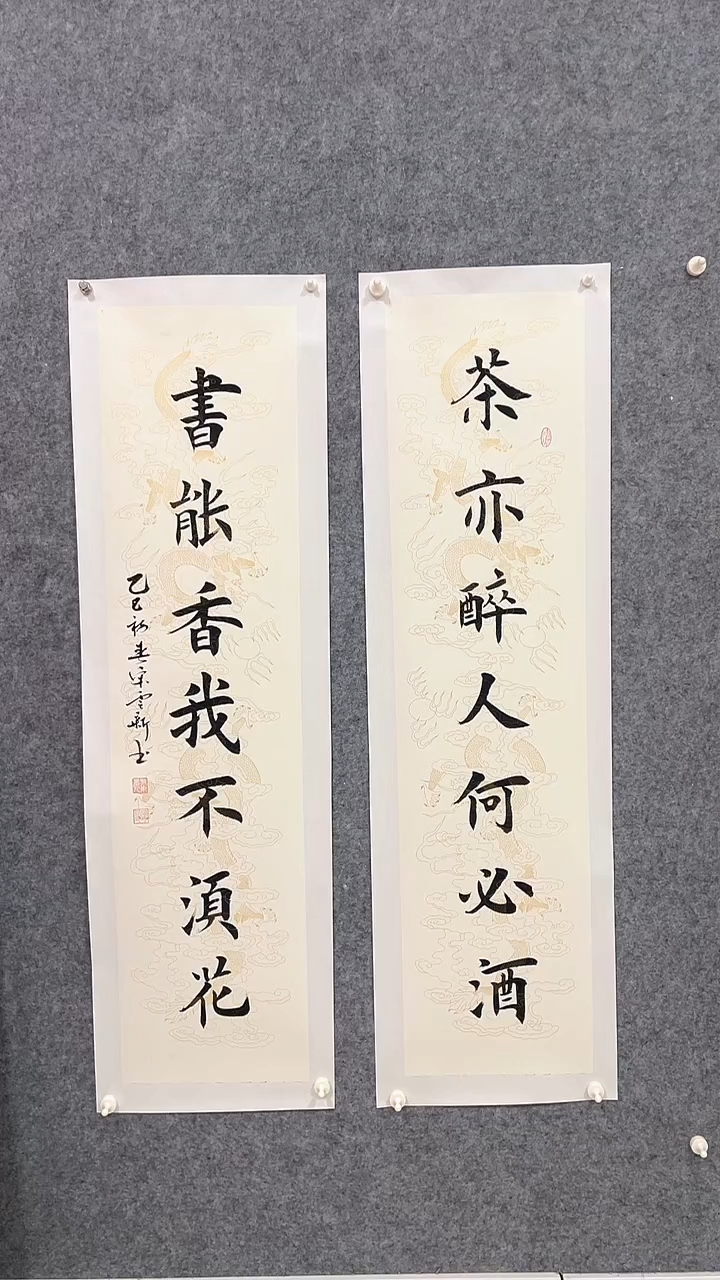 茶亦醉人何必酒
書能香我不須花
乙巳初春宋雲新书